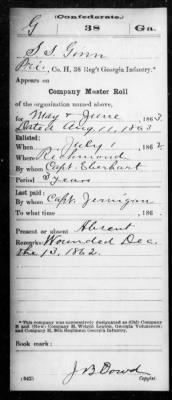 (Confederate.)
G 38 Ga.
S S Gonn
Pri, Co. H, 38 Reg't Georgia Infantry.*
Appears on
Company Muster Roll
of the organization named above,
for May & June, 1863.
Dated Aug 11, 1863
Enlisted:
When July 1, 1862.
Where Richmond
By whom Capt. Eberhart
Period 3 years
Last paid:
By whom Capt. Jernigan
To what time , 186 .
Present or absent Absent
Remarks: Wounded Dec.
the 13, 1862.
*This company was successively designated as (Old) Company
and (New) Company H, Wright Legion, Georgia Volunteers;
and Company H, 38th Regiment Georgia Infantry.
Book mark:
J B Dowd
(642) Copyist.